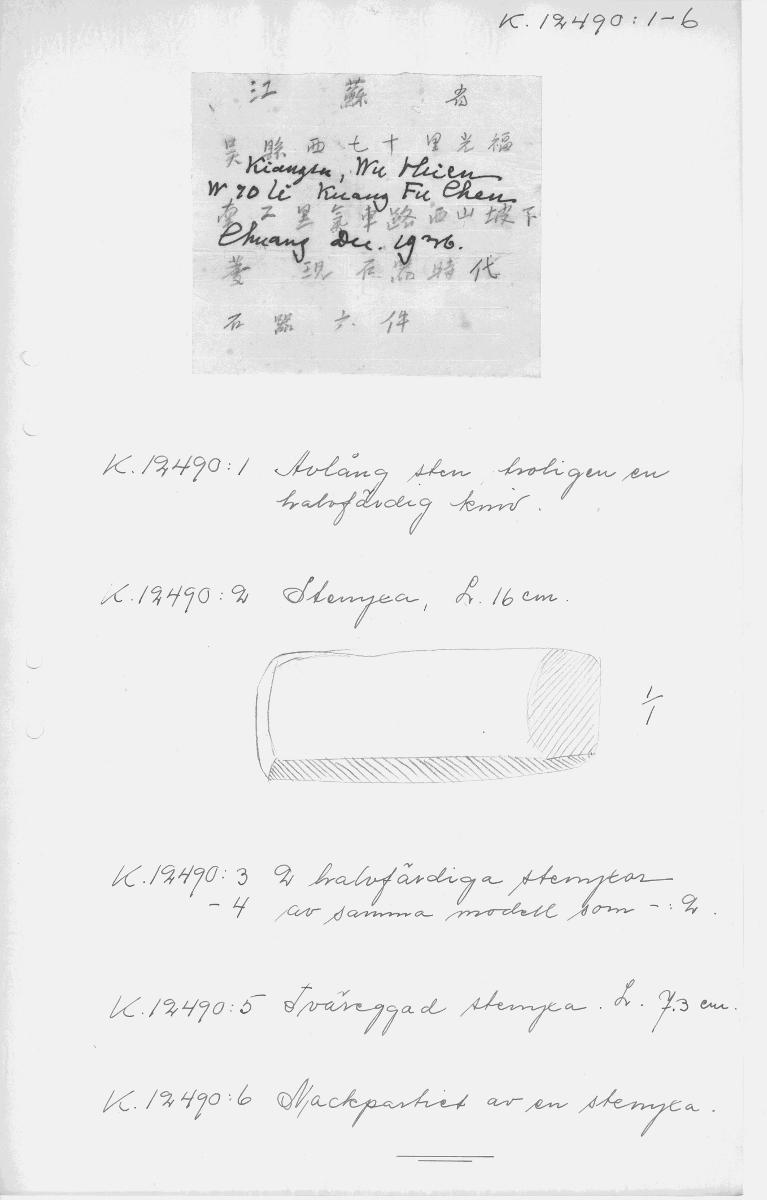 K. 12490:1-6
江 蘇 省
吳 縣 西 七 十 里 光 福
Kiangsu, Wu Hsien
W 70 li Kuang Fu Chen
里 氣 車 路 西 山 坡 下
Chuang Dec. 1936.
現 石 器 時 代
石 器 六 件
K.12490:1 Avlång sten, troligen en
halvfärdig kniv.
K.12490:2 Stenyxa, L. 16 cm.
1/1
K.12490:3 2 halvfärdiga stenyxor
-4 av samma modell som -:2.
K.12490:5 Tväreggad stenyxa. L. 7.3 cm.
K.12490:6 Nackpartiet av en stenyxa.